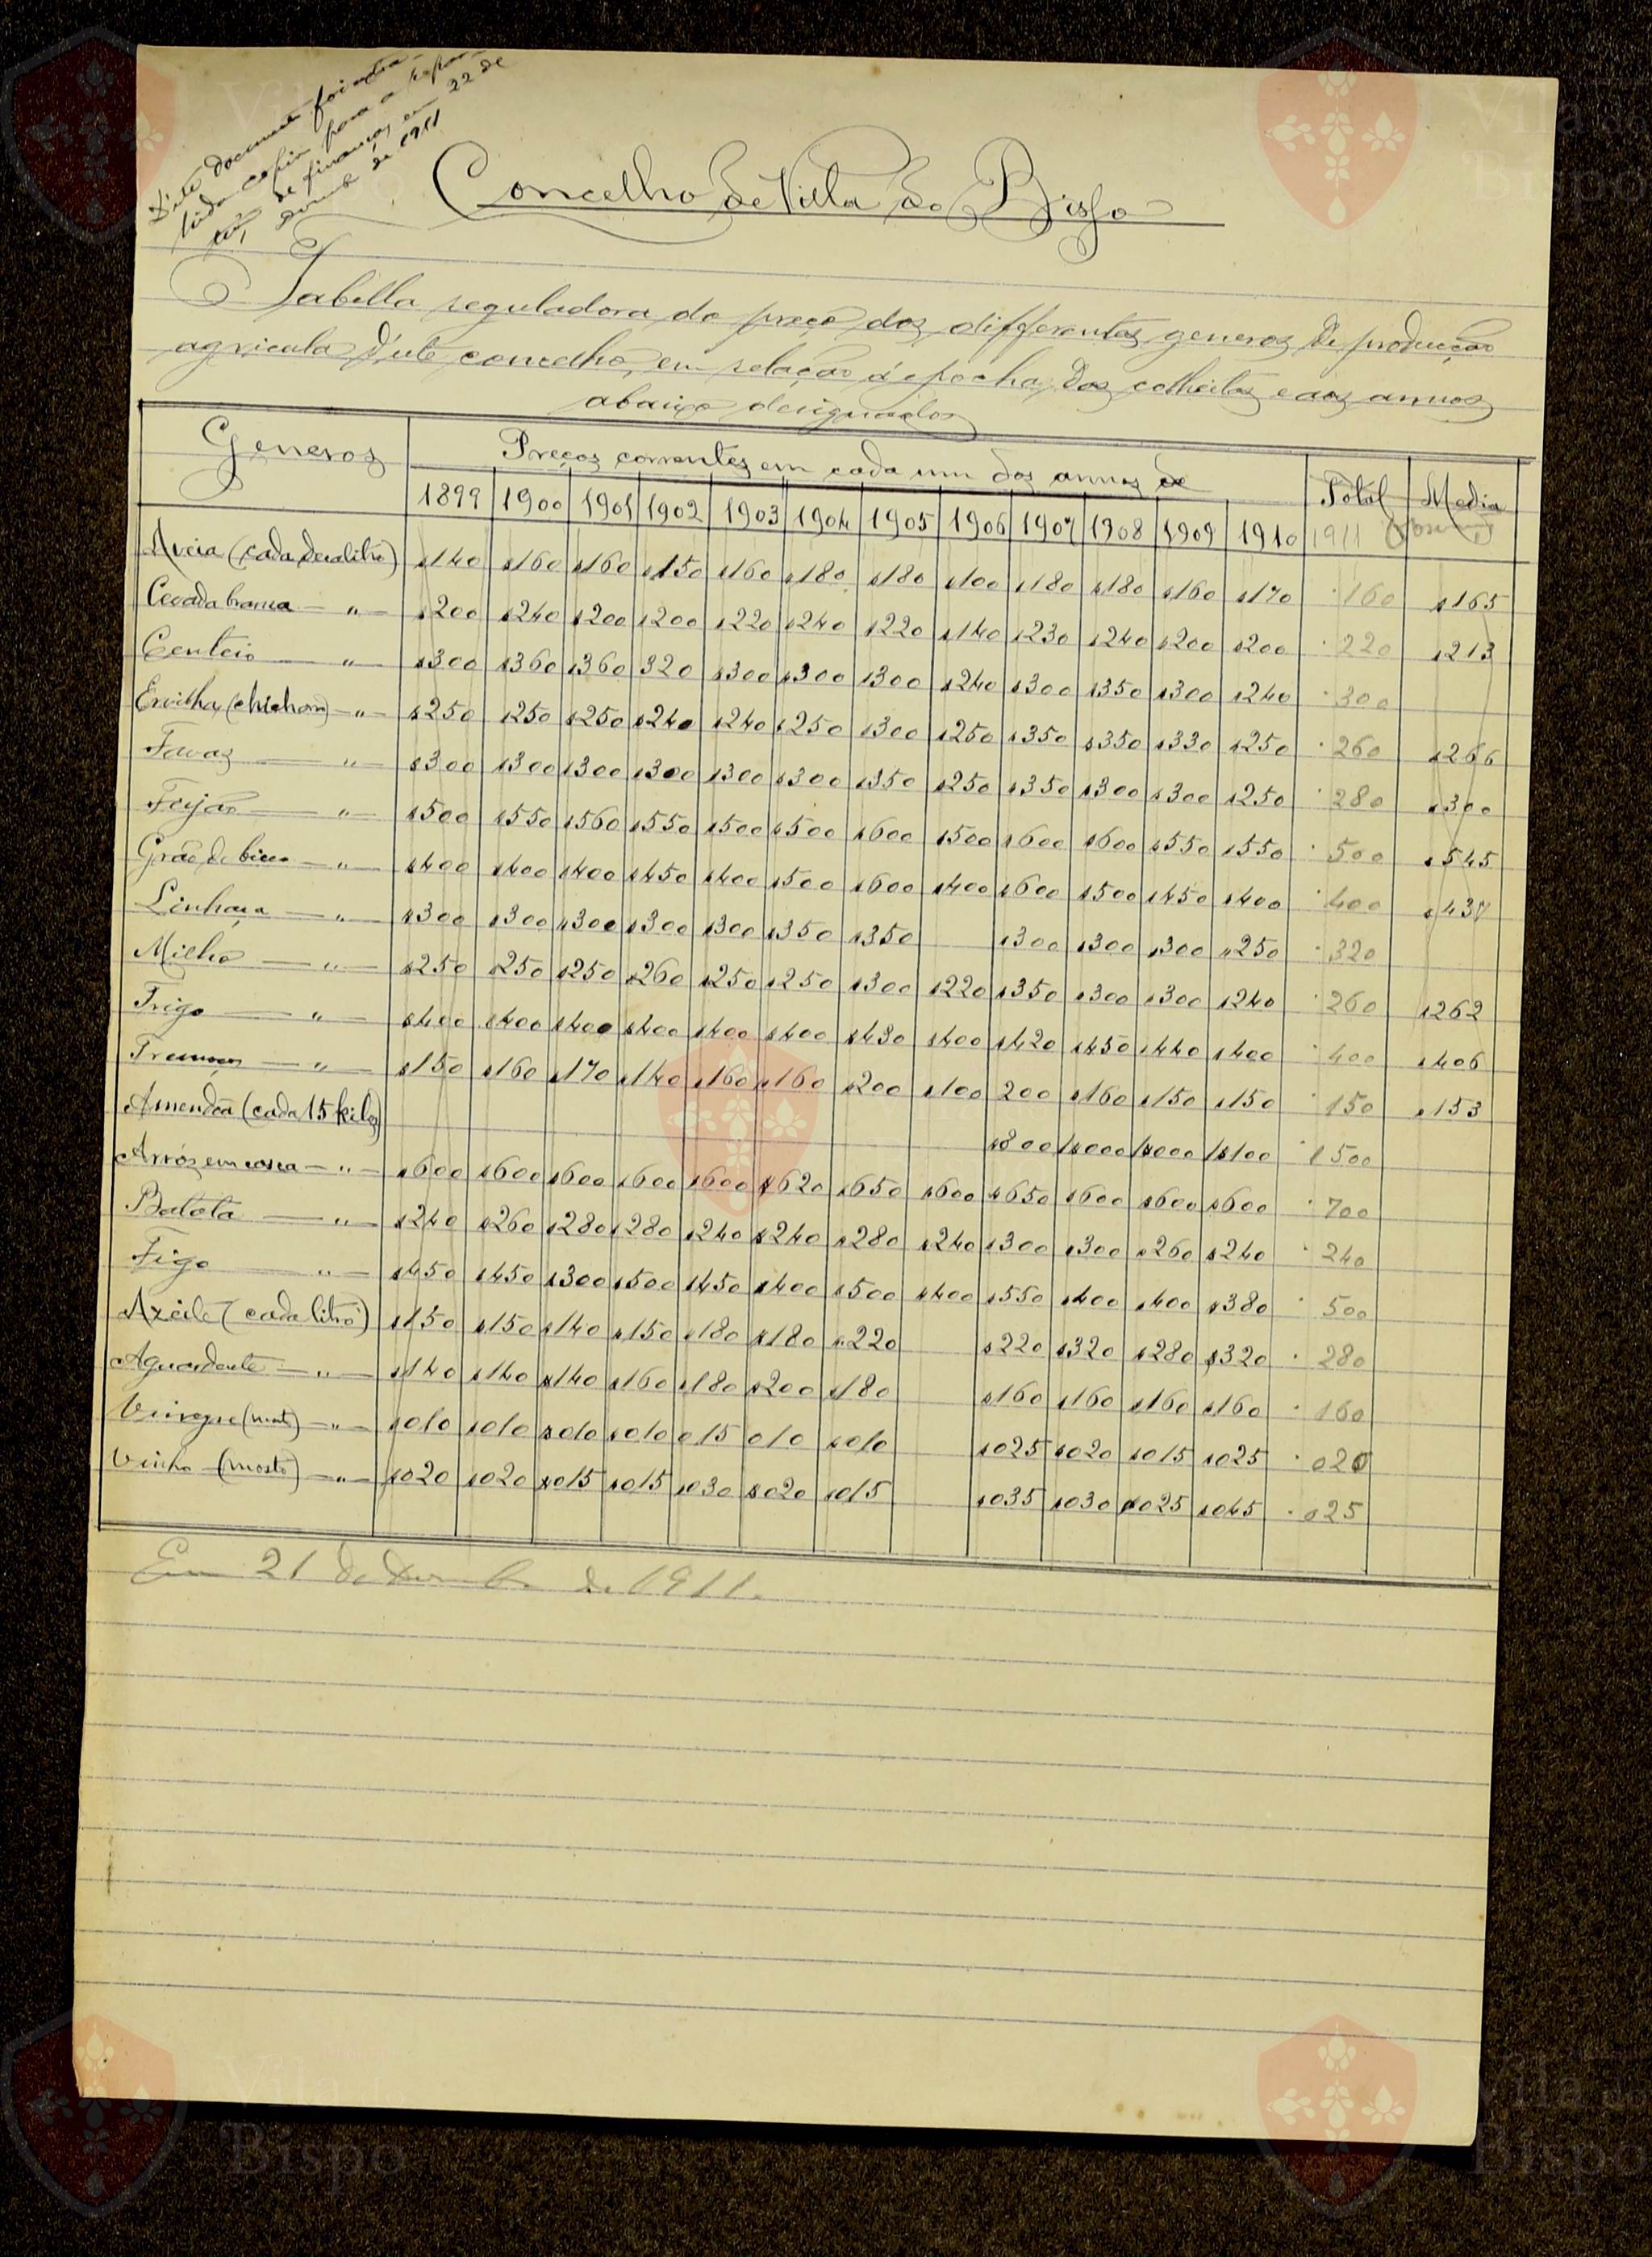 D'este documento foi extra-
hida copia para a repar-
tição de finanças em 22 de
Dezembro de 1911
Concelho de Villa do Bispo
Tabella reguladora do preço dos differentes generos de producção
agricula d'este concelho, em relação á epocha das colheitas e aos annos
abaixo designados
Generos Preços correntes em cada um dos annos de Total Media
1899 1900 1901 1902 1903 1904 1905 1906 1907 1908 1909 1910 1911
Aveia (cada decalitro) $140 $160 $160 $150 $160 $180 $180 $100 $180 $180 $160 $170 160 $165
Cevada branca — " — $200 $240 $200 $200 $220 $240 $220 $140 $230 $240 $200 $200 220 $213
Centeio — " — $300 $360 $360 320 $300 $300 $300 $240 $300 $350 $300 $240 300
Ervilha (chicharo) — " — $250 $250 $250 $240 $240 $250 $300 $250 $350 $350 $330 $250 260 $266
Favas — " — $300 $300 $300 $300 $300 $300 $350 $250 $350 $300 $300 $250 280 $300
Feijão — " — $500 $550 $560 $550 $500 $500 $600 $500 $600 $600 $550 $550 500 $545
Grão de bico — " — $400 $400 $400 $450 $400 $500 $600 $400 $600 $500 $450 $400 400 $437
Linhaça — " — $300 $300 $300 $300 $300 $350 $350 $300 $300 $300 $250 320
Milho — " — $250 $250 $250 $260 $250 $250 $300 $220 $350 $300 $300 $240 260 $262
Trigo — " — $400 $400 $400 $400 $400 $400 $430 $400 $420 $450 $440 $400 400 $406
Tremoços — " — $150 $160 $170 $140 $160 $160 $200 $100 200 $160 $150 $150 150 $153
Amendoa (cada 15 kilos) $800 1$000 1$000 1$100 1500
Arrós em casca — " — $600 $600 $600 $600 $600 $620 $650 $600 $650 $600 $600 $600 700
Batata — " — $240 $260 $280 $280 $240 $240 $280 $240 $300 $300 $260 $240 240
Figo — " — $450 $450 $300 $500 $450 $400 $500 $400 $550 $400 $400 $380 500
Azeite (cada litro) $150 $150 $140 $150 $180 $180 $220 $220 $320 $280 $320 280
Aguardente — " — $140 $140 $140 $160 $180 $200 $180 $160 $160 $160 $160 160
Vinagre (mosto) — " — $010 $010 $010 $010 015 010 $010 $025 $020 $015 $025 020
Vinho (mosto) — " — $020 $020 $015 $015 $030 $020 $015 $035 $030 $025 $045 025
Em 21 de Dezembro de 1911.
Vila do
Bispo